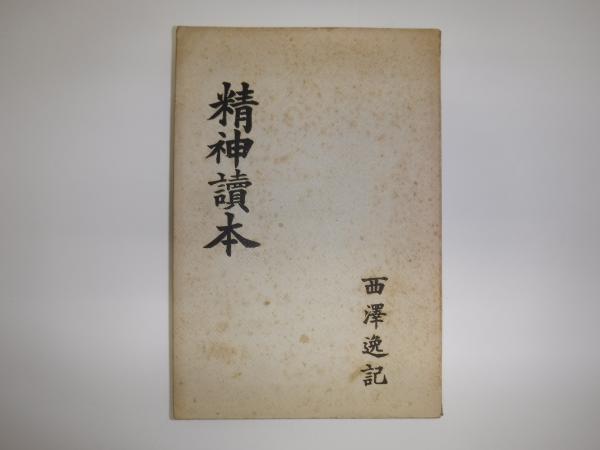 精神讀本
西澤逸記